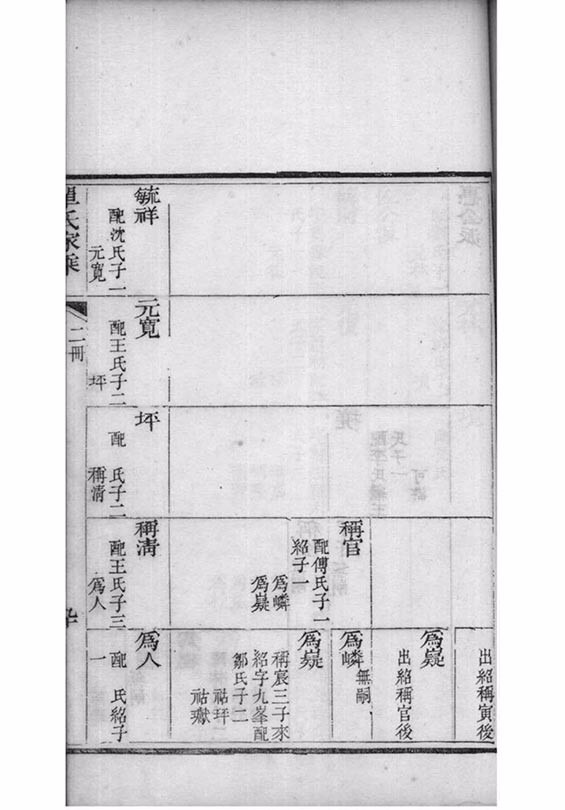 出紹稱寅後
爲嶷
出紹稱官後
稱官
配傅氏子一
紹子一
爲嶙
爲嶷
爲嶙
無嗣
爲嶷
稱宸三子來
紹字九峯配
鄒氏子二
祜玶
祜嶽
毓祥
配沈氏子一
元寬
元寬
配王氏子二
坪
坪
配 氏子二
稱清
稱清
配王氏子三
爲人
爲人
配 氏紹子
一
氏家乘
二冊